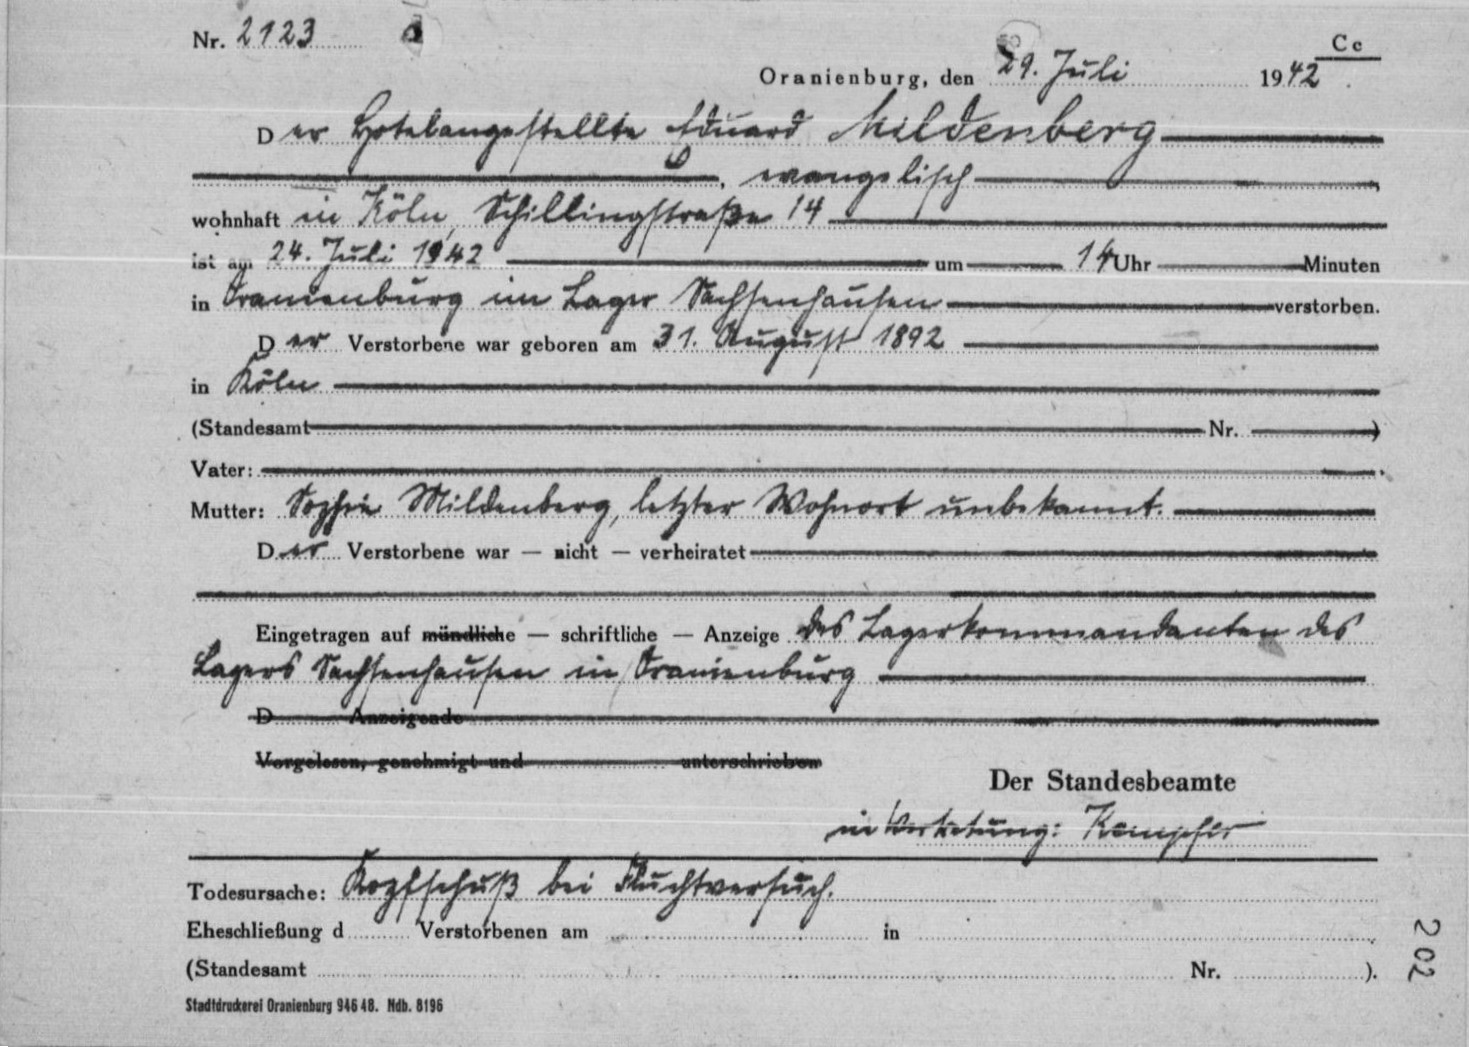 Nr. 2123
Cc
Oranienburg, den 29. Juli 1942
Der Hotelangestellte Eduard Mildenberg
, evangelisch
wohnhaft in Köln, Schillingstraße 14
ist am 24. Juli 1942 um 14 Uhr Minuten
in Oranienburg im Lager Sachsenhausen verstorben.
Der Verstorbene war geboren am 31. August 1892
in Köln
(Standesamt Nr. )
Vater:
Mutter: Sophie Mildenberg, letzter Wohnort unbekannt.
Der Verstorbene war — nicht — verheiratet
Eingetragen auf mündliche — schriftliche — Anzeige des Lagerkommandanten des
Lagers Sachsenhausen in Oranienburg
D Anzeigende
Vorgelesen, genehmigt und unterschrieben
Der Standesbeamte
in Vertretung: Kempfer
Todesursache: Kopfschuß bei Fluchtversuch.
Eheschließung d Verstorbenen am in
(Standesamt Nr. ).
Stadtdruckerei Oranienburg 946 48. Ndb. 8196
202